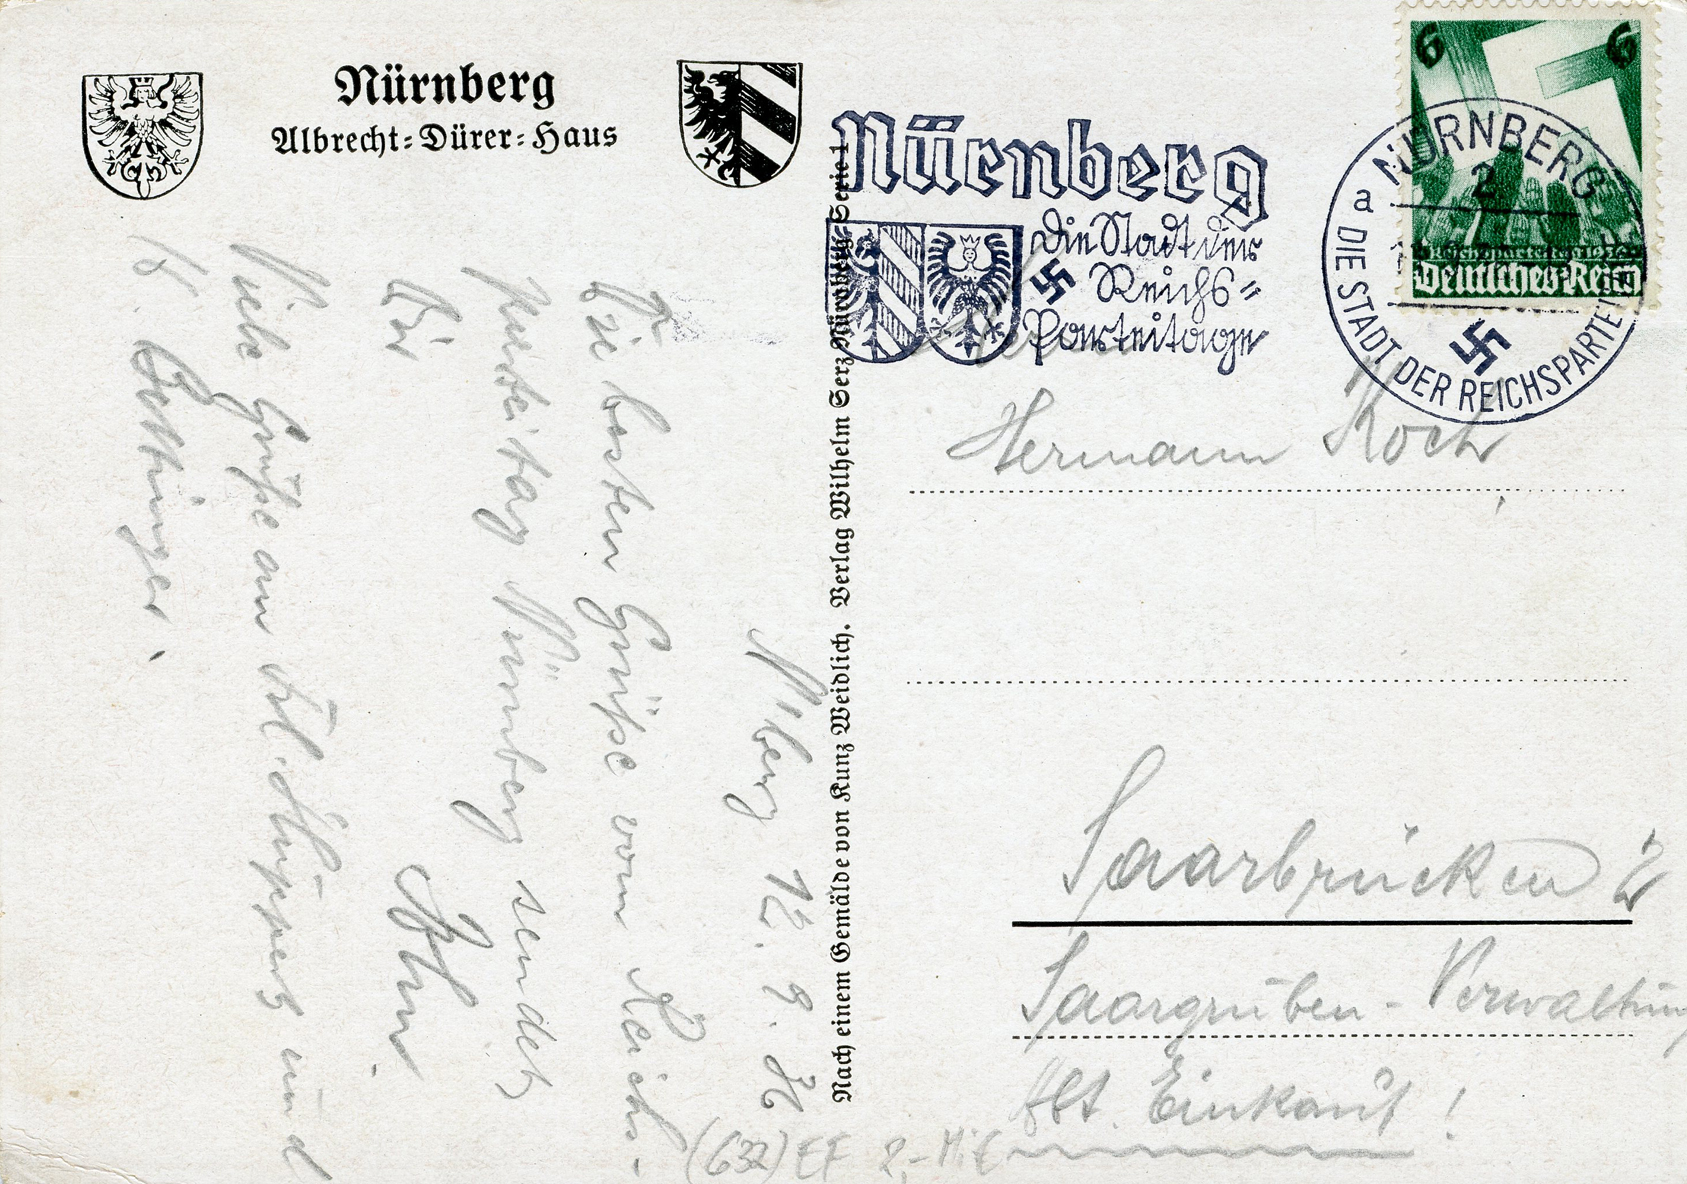 Nürnberg
Albrecht-Dürer-Haus
Nürnberg
Die Stadt der
Reichs-
Parteitage
6 6
Reichsparteitag 1936
Deutsches Reich
NÜRNBERG
2
a
DIE STADT DER REICHSPARTEITAGE
Nach einem Gemälde von Kunz Weidlich. Verlag Wilhelm Serz Nürnberg Serie 1
N'berg 12. 9. 36
Die besten Grüße vom Reichs-
parteitag Nürnberg sendet
Dir
Viele Grüße an Frl. und
K.
Herrn
Hermann Koch
Saarbrücken 2
Saargruben-Verwaltung
Abt. Einkauf!
(632) EF 2,- MiE